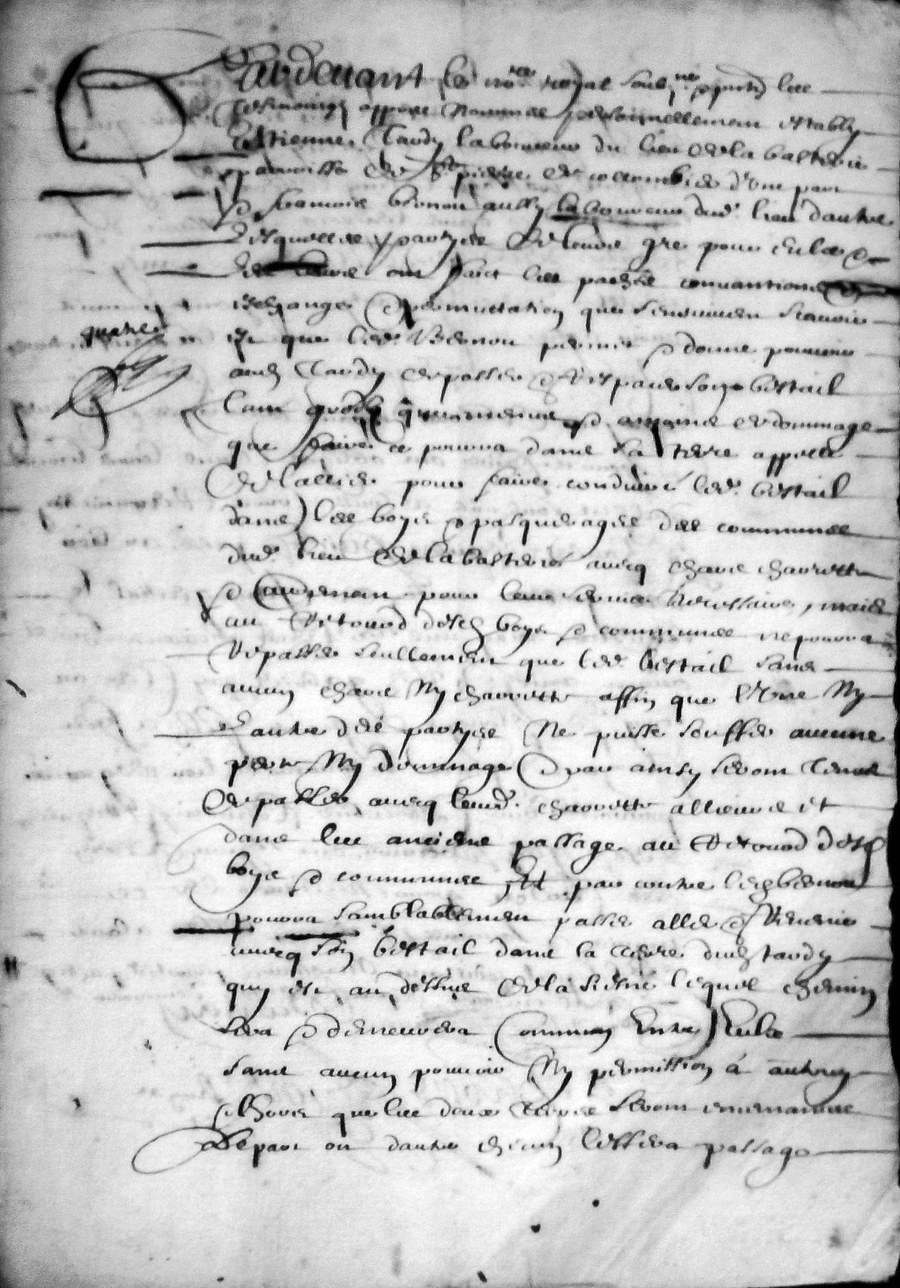 Pardevant le no.re royal soub.ne present les
tesmoings appres nommés personnellement estably
Estienne Tardy laboureur du lieu de la basterie
parroisse de S.t pierre de d'une part
& françois bernon aussy laboureur dud. lieu d'autre
lesquelles partyes de leurs gre pour eulx &
les leurs ont faict les pactes conventions
eschanges & permuttation que s'ensuivent scavoir
est que led. Bernon permis & donne pouvoir
aud Tardy de passer & son bestail
tant gros que & dommage
que faire ce pourra dans sa terre appellé
de pour faire conduire led. bestail
dans les boys & pasquerages des communes
dud. lieu de la basterie avecq chars charrette
& pour leur service necessaire, mais
au Retourd desd boys & communes ne pourra
Repasser seullement que led. bestail sans
aucun chars Ny charrette affin que l'Une Ny
l'autre des partyes Ne puisse souffrir aucune
perte Ny dommage & par ainsy seront tenus
de passer avecq leurd. charrette allieurs et
dans les anciens passage au Retourd desd
boys & communes, Et par contre led bernon
pourra samblablement passer aller & Revenir
avecq son bestail dans la terre dud tardy
quy est au dessus de la sienne lequel chemin
sera & demeurera Commun Entre Eulx
sans aucun pouvoir Ny permission à autruy
que les deux terres seront
de part ou d'autre chacun lessera passage